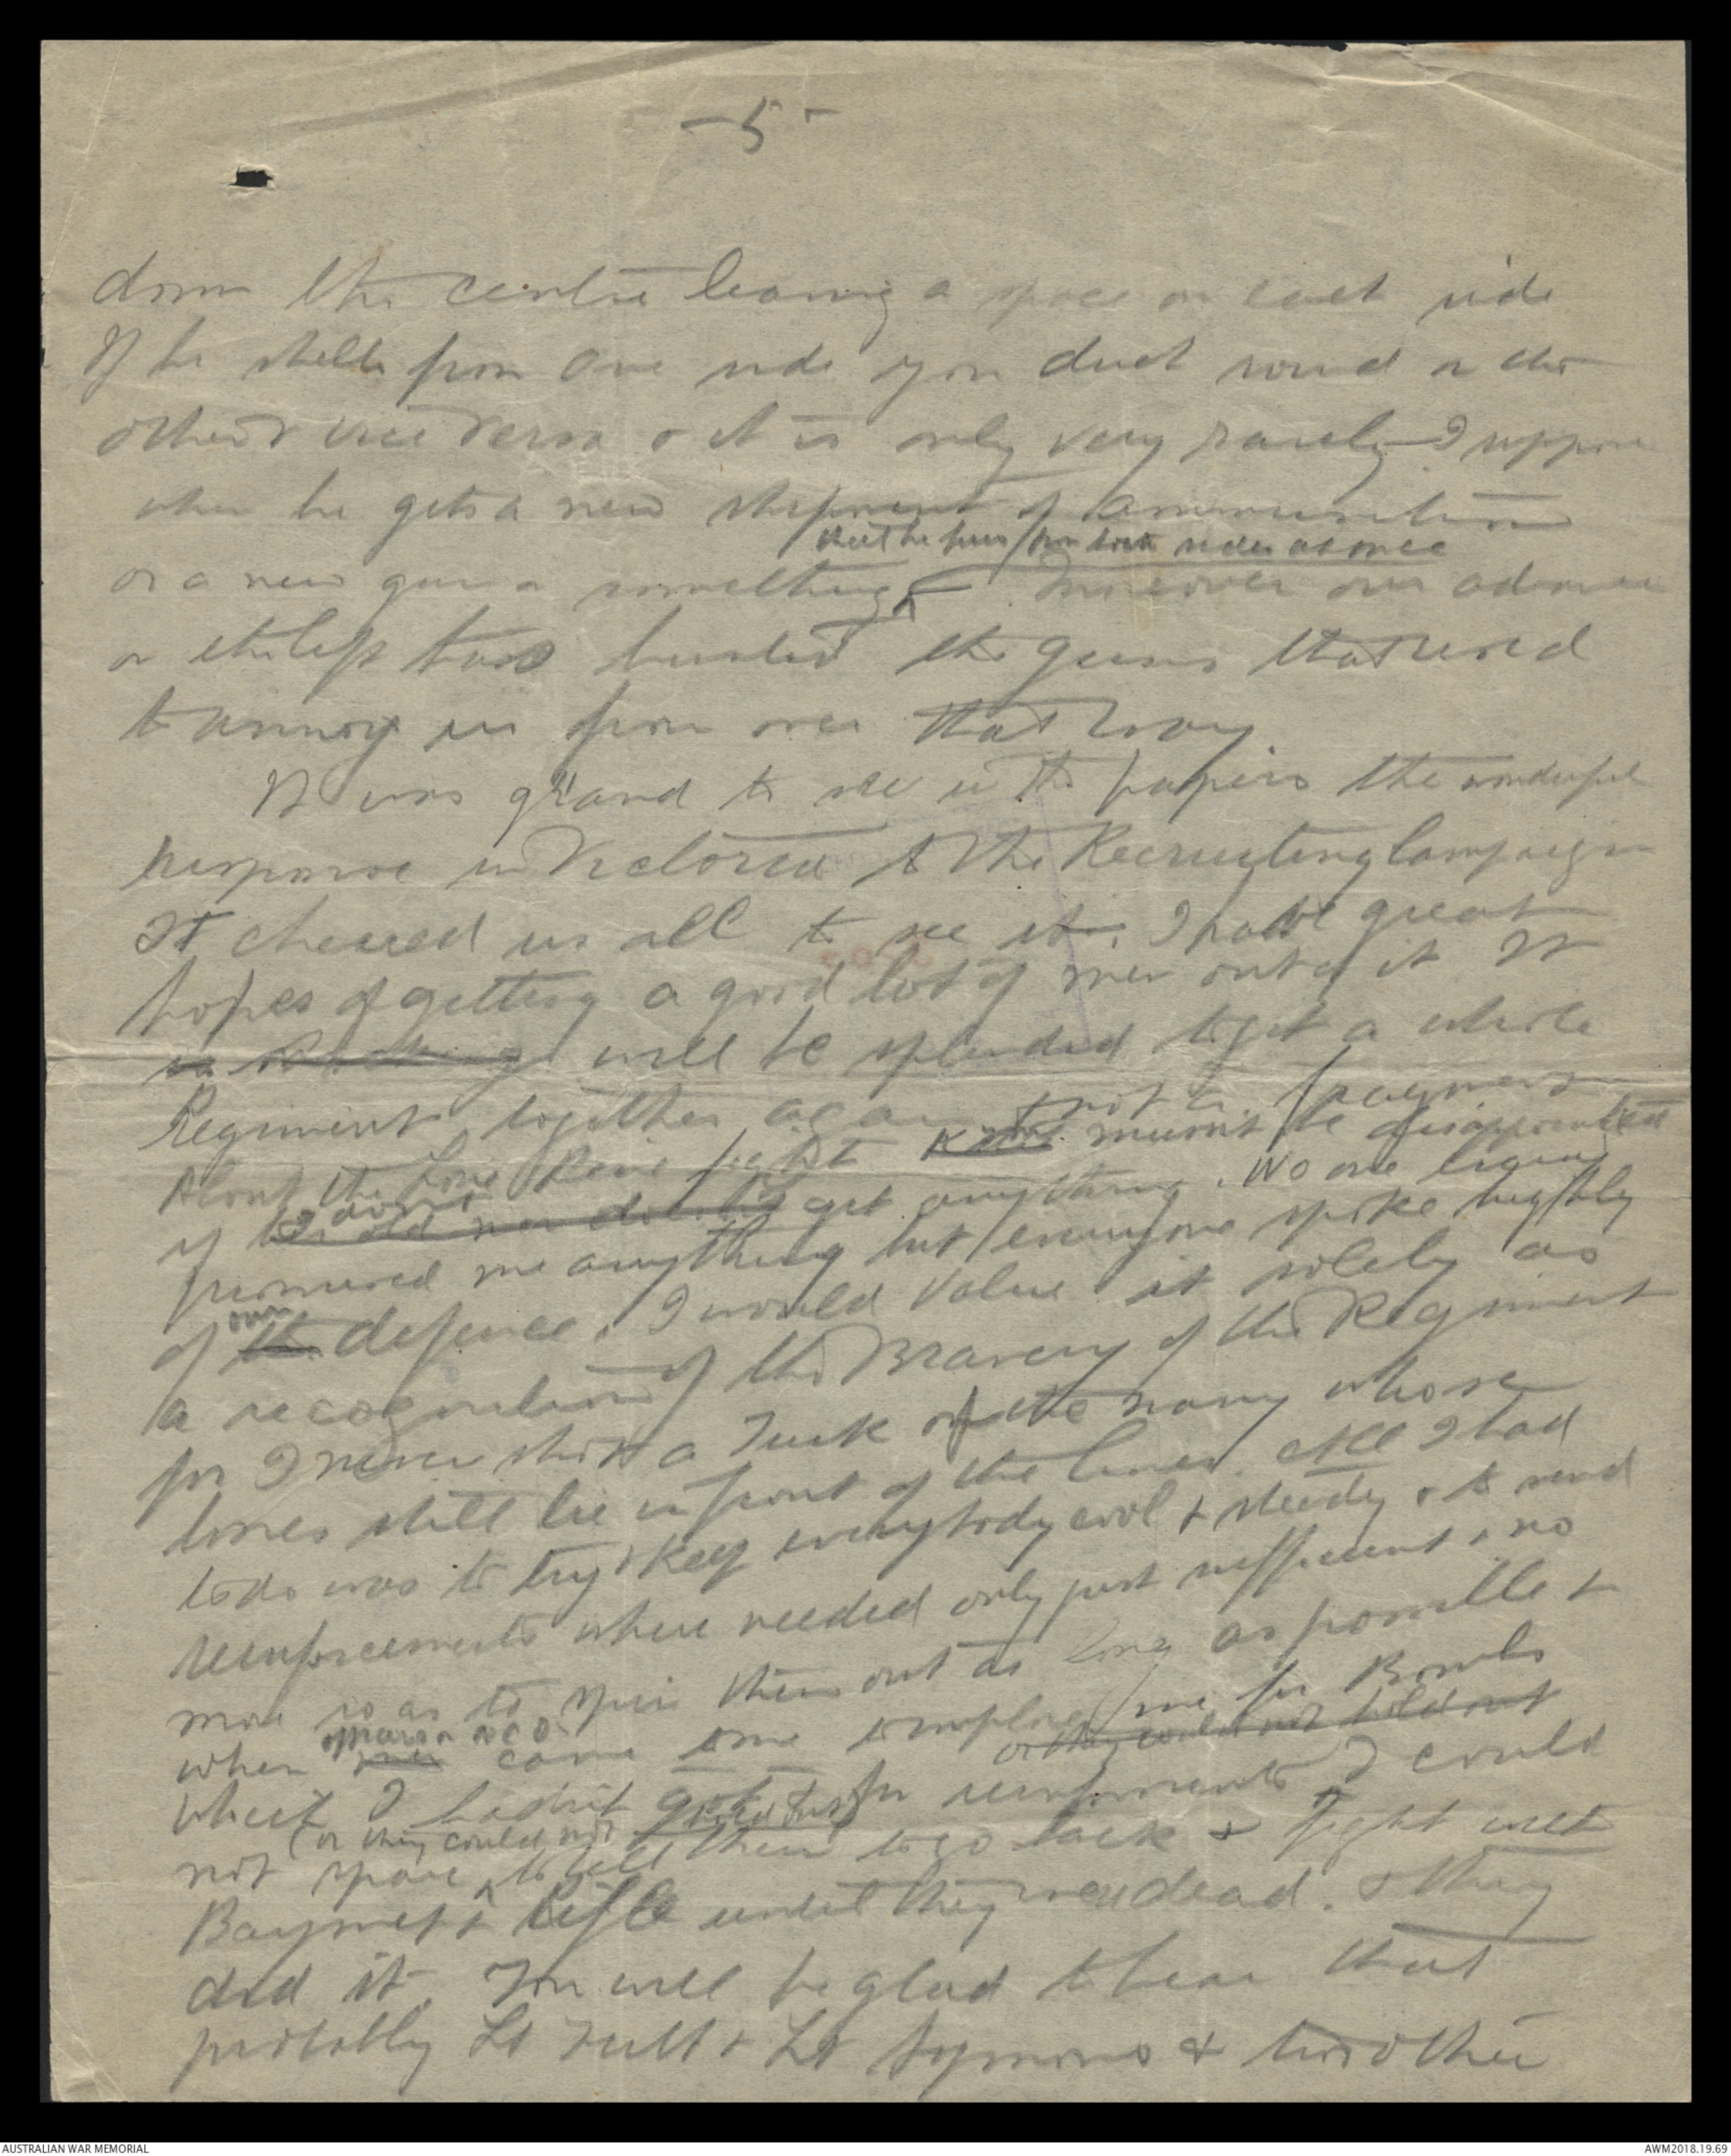 - 5 -
down the centre leaving a space on each side
If he shells from one side you duck round on the
other & vice versa & it is only very rarely I suppose
when he gets a new shipment of ammunition
that he fires from both sides at once
or a new gun or something. Moreover our advance
on the left has busted the guns that used
to annoy us from over that way
It was grand to see in the papers the wonderful
response in Victoria to the Recruiting Campaign
It cheered us all to see it. I have great
hopes of getting a good lot of men out of it It
is will be splendid to get a whole
Regiment together again not a fragment
About the Lone Pine fight mustn't be disappointed
if I don't get anything. No one ever
promised me anything but everyone spoke highly
of our the defence. I would value it solely as
a recognition of the Bravery of the Regiment
for I never shot a Turk of the many whose
bones still lie in front of the lines. All I had
to do was to try & keep everybody cool & steady & to send
reinforcements where needed only just sufficient & no
more so as to spin them out as long as possible &
when men came to me imploring me for Bombs
or they could not hold out
which I hadn't got or for reinforcements I could
(or they could not hold out)
not spare, to tell them to go back & fight with
Bayonet & Rifle until they were dead. & they
did it. You will be glad to hear that
probably Lt Tubb & Lt Symons & two other